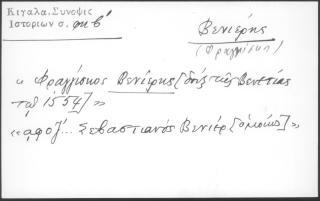 Κιγαλα, Συνοψις
Ιστοριων σ. φιβ'
Βενιέρης
(Φραγγίσκος)
« Φραγγίσκος Βενιέρης [δόξ τῆς Βενετίας
τῷ 1554] »
«αφοζ'... Σεβαστιανὸς Βενιέρ [ὁμοίως] »